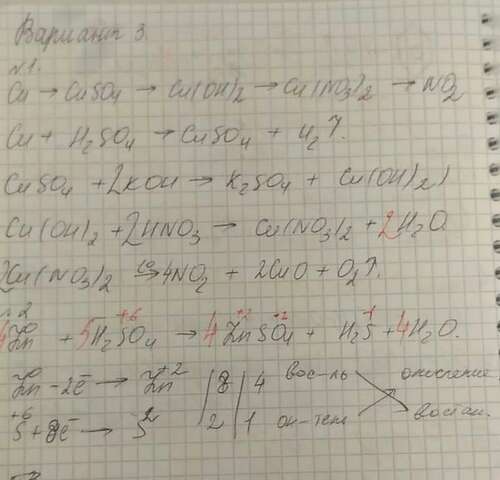 Вариант 3.
№1.
Cu → CuSO4 → Cu(OH)2 → Cu(NO3)2 → NO2
Cu + H2SO4 → CuSO4 + H2↑.
CuSO4 + 2KOH → K2SO4 + Cu(OH)2)
Cu(OH)2 + 2HNO3 → Cu(NO3)2 + 2H2O
2Cu(NO3)2 → 4NO2 + 2CuO + O2↑.
4Zn + 5H2SO4 → 4ZnSO4 + H2S + 4H2O.
Zn - 2ē → Zn +2 | 8 | 4 вос-ль окисление
+6 S + 8ē → S | 2 | 1 ок-тель восстан.